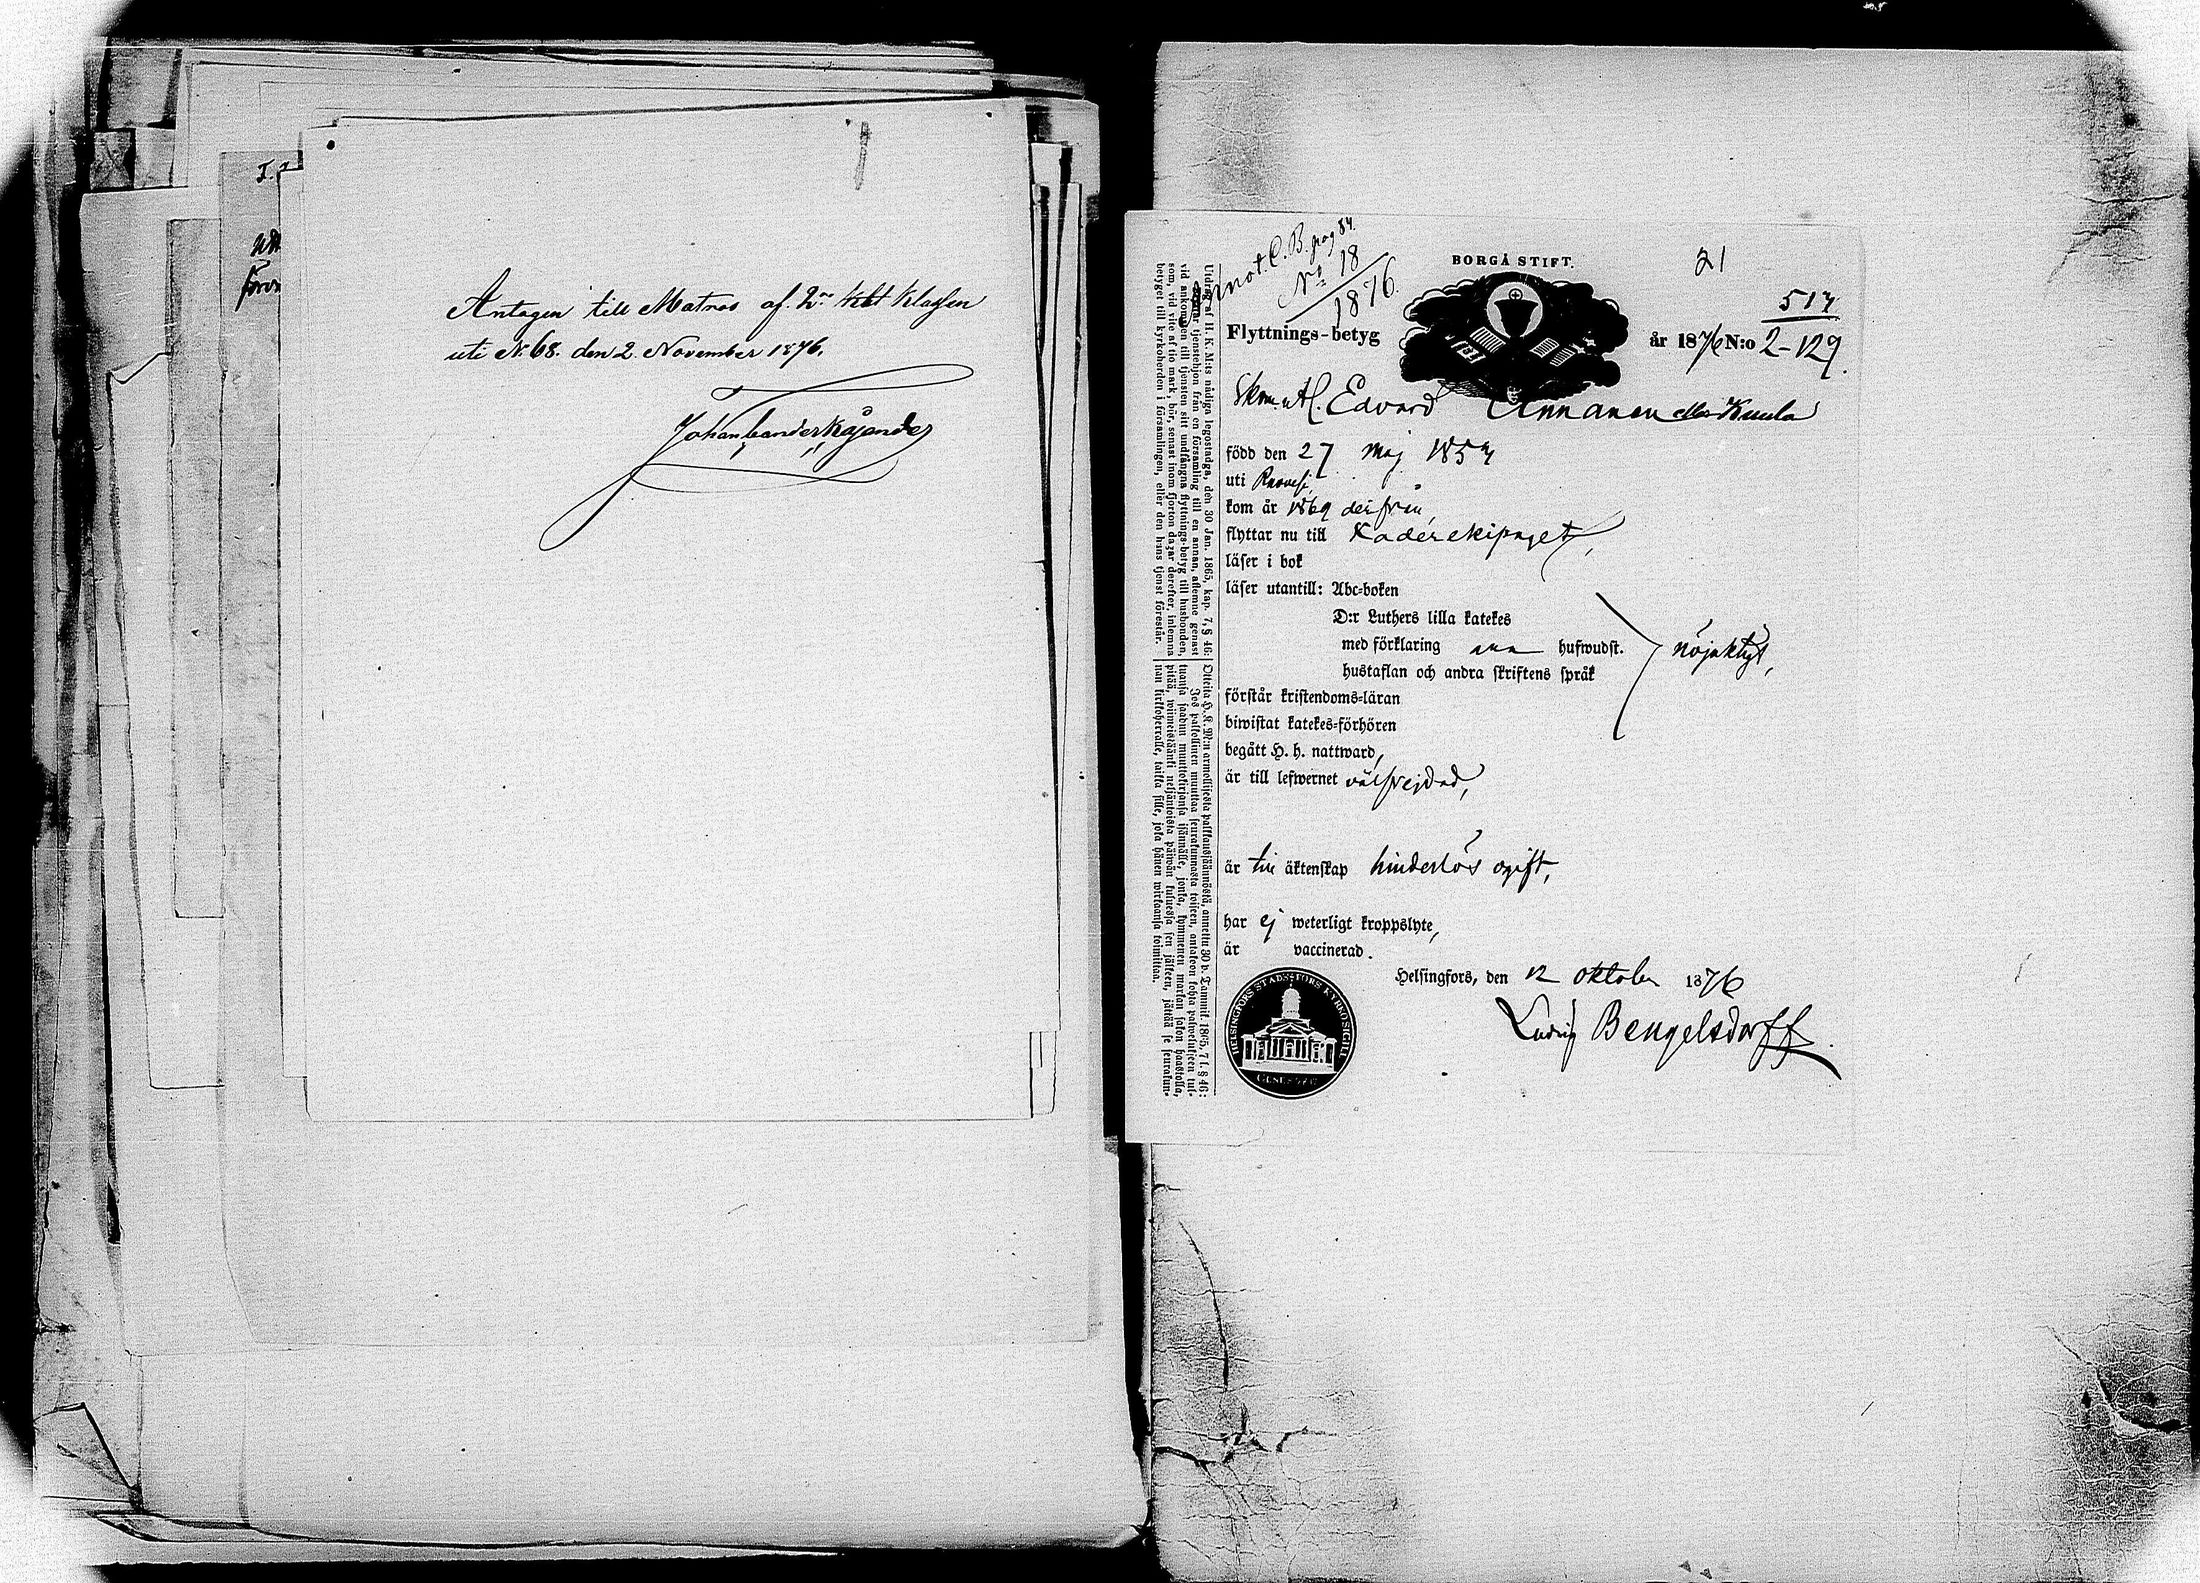 Antagen till Matros af 2:n Klassen
uti N:o 68. den 2 November 1876.
Annot. C. B. pag 84.
No 18
1876.
BORGÅ STIFT.
21
517
Flyttnings-betyg
år 1876 N:o 2-129.
Edvard Annanen eller Kuula
född den 27 Maj 1857
uti
kom år 1869 derfrån,
flyttar nu till Kaderekipaget,
läser i bok
läser utantill: Abc-boken
D:r Luthers lilla katekes
med förklaring hufwudst.
nöjaktigt,
hustaflan och andra skriftens språk
förstår kristendoms-läran
biwistat katekes-förhören
begått H. h. nattward,
är till lefwernet välfrejdad,
är till äktenskap hinderlös ogift,
har ej weterligt kroppslyte,
är vaccinerad.
Helsingfors, den 12 oktober 1876
Ludvig Bengelsdorff.
HELSINGFORS STADSFÖRS. KYRKO SIGILL
Utdrag af H. K. M:ts nådiga legostadga, den 30 Jan. 1865, kap. 7, § 46:
tjenstehjon från en församling till en annan, aflemne genast
vid ankomsten till tjensten sitt undfångna flyttnings-betyg till husbonden,
som, vid vite af tio mark, bör, senast inom fjorton dagar derefter, inlemna
betyget till kyrkoherden i församlingen, eller den hans tjenst förestår.
Otteita H. K. M:n armollisesta palkkaussäännöstä, annettu 30 p. Tammik. 1865, 7 l. § 46:
Jos palkollinen muuttaa seurakunnasta toiseen, antakoon kohta palwelukseen tul-
tuansa saadun muuttokirjansa isännälle, jonka, kymmenen markan sakon haastolla,
pitää, wiimeistäänki neljäntoista päiwän kuluessa sen jälkeen, jättää se seurakun-
nan kirkkoherralle, taikka sille, joka hänen wirkaansa toimittaa.